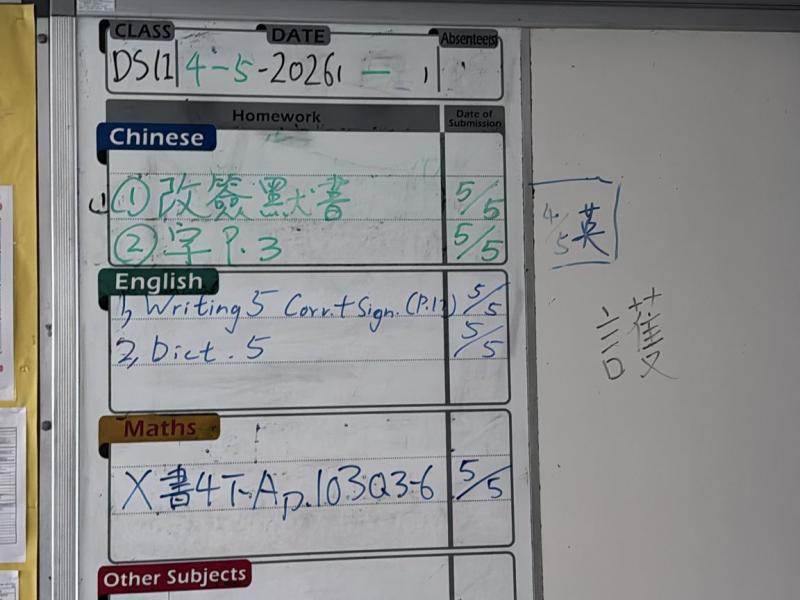 CLASS DATE Absentee(s)
4-5-2026 一
Homework Date of Submission
Chinese
① 改簽默書 5/5
② 字 P.3 5/5
English
1, Writing 5 Corr.+Sign. (P.17) 5/5
2, Dict. 5 5/5
Maths
X書4下A p.103Q3-6 5/5
Other Subjects
4/5 英
護